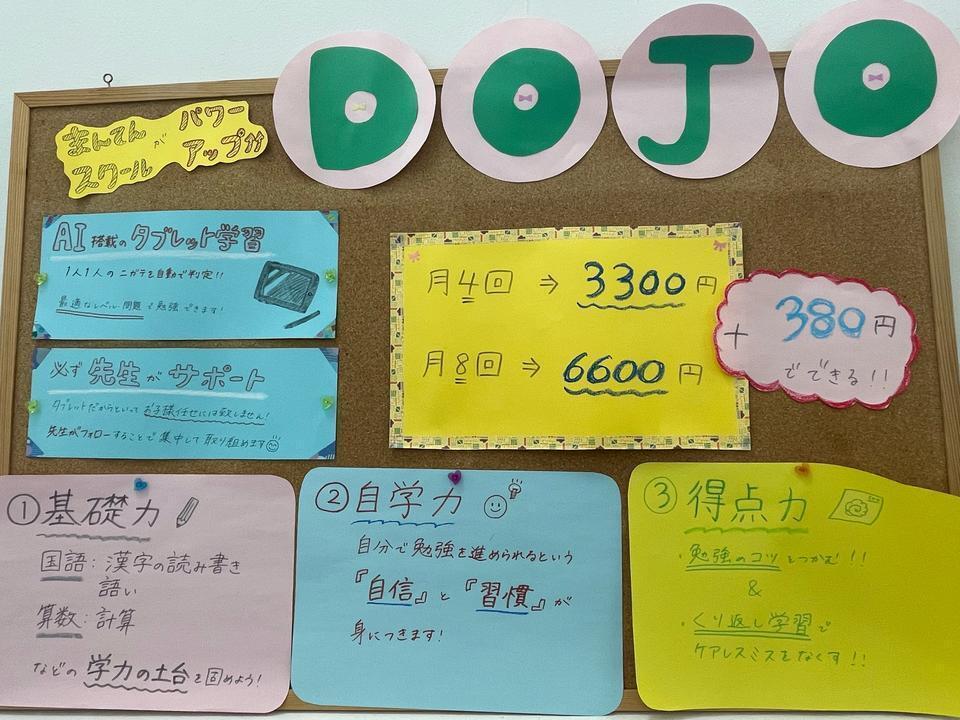 DOJO
まんてん
スクール
が
パワー
アップ!!
AI搭載のタブレット学習
1人1人のニガテを自動で判定!!
最適なレベル問題で勉強できます!
必ず先生がサポート
タブレットだからといってお子様任せには致しません!
先生がフォローすることで集中して取り組めます
月4回 ⇒ 3300円
月8回 ⇒ 6600円
+380円
でできる!!
①基礎力
国語:漢字の読み書き
語い
算数:計算
などの学力の土台を固めよう!
②自学力
自分で勉強を進められるという
『自信』と『習慣』が
身につきます!
③得点力
・勉強のコツをつかむ!!
&
・くり返し学習で
ケアレスミスをなくす!!